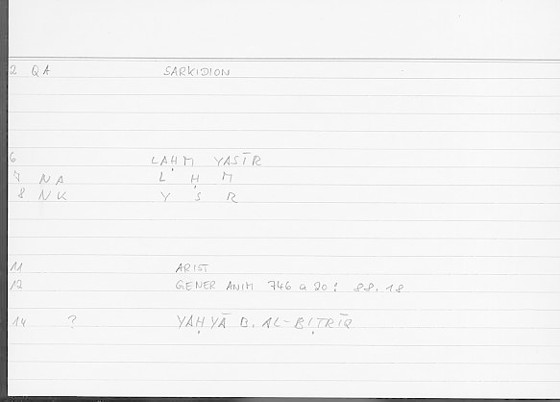 2 QA SARKIDION
6 LAḤM YASĪR
7 NA L Ḥ M
8 NK Y S R
11 ARIST
12 GENER ANIM 746 a 20 : 88.18
14 ? YAḤYĀ B. AL-BIṬRĪQ